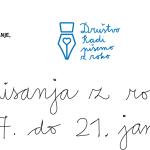 NJE,
Društvo
Radi
pišemo
z roko
isanja z ro
7. do 21. jan